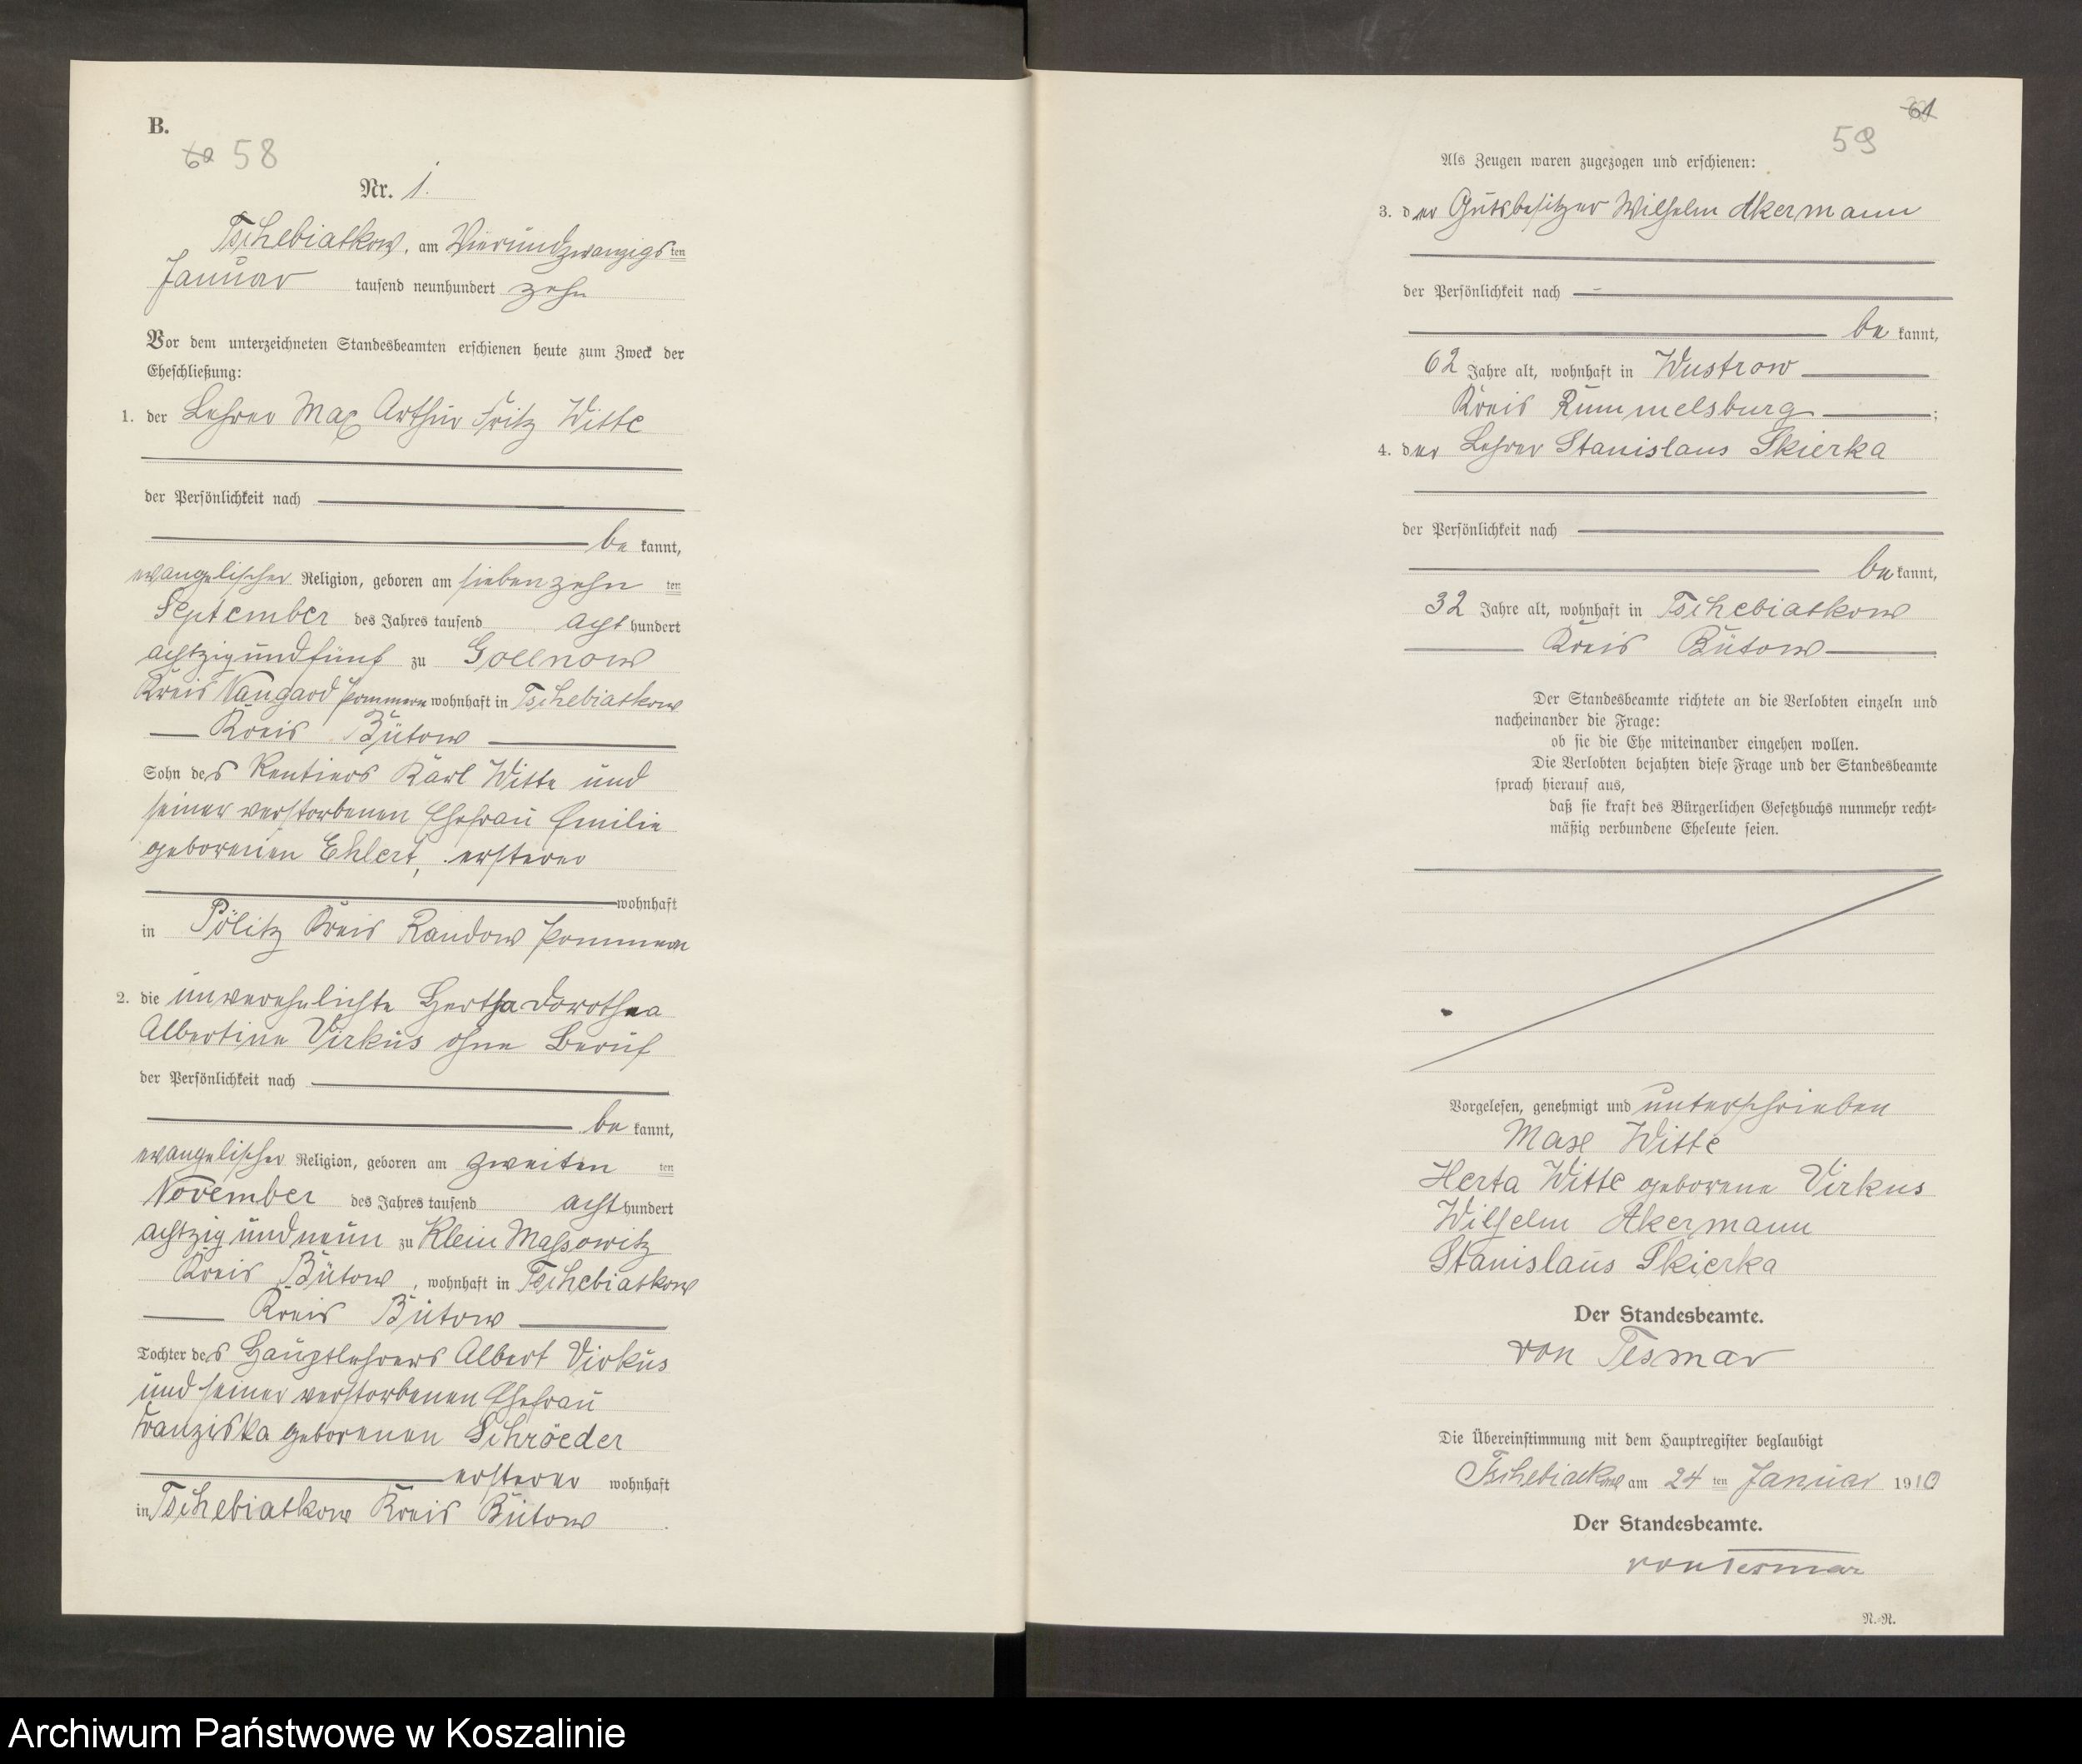 B.
60 58
Nr. 1.
Tschebiatkow, am Vierundzwanzigsten
Januar tausend neunhundert zehn
Vor dem unterzeichneten Standesbeamten erschienen heute zum Zweck der
Eheschließung:
1. der Lehrer Max Arthur Fritz Witte
der Persönlichkeit nach
be kannt,
evangelischer Religion, geboren am siebenzehn ten
September des Jahres tausend acht hundert
achtzig und fünf zu Gollnow
Kreis Naugard Pommern wohnhaft in Tschebiatkow
Kreis Bütow
Sohn des Rentiers Karl Witte und
seiner verstorbenen Ehefrau Emilie
geborenen Ehlert, ersterer
wohnhaft
in Pölitz Kreis Randow Pommern
2. die unverehelichte Hertha Dorothea
Albertine Virkus ohne Beruf
der Persönlichkeit nach
be kannt,
evangelischer Religion, geboren am zweiten ten
November des Jahres tausend acht hundert
achtzig und neun zu Klein Massowitz
Kreis Bütow, wohnhaft in Tschebiatkow
Kreis Bütow
Tochter des Hauptlehrers Albert Virkus
und seiner verstorbenen Ehefrau
Franziska geborenen Schröeder
ersterer wohnhaft
in Tschebiatkow Kreis Bütow
61
59
Als Zeugen waren zugezogen und erschienen:
3. der Gutsbesitzer Wilhelm Akermann
der Persönlichkeit nach
be kannt,
62 Jahre alt, wohnhaft in Wustrow
Kreis Rummelsburg ;
4. der Lehrer Stanislaus Skierka
der Persönlichkeit nach
be kannt,
32 Jahre alt, wohnhaft in Tschebiatkow
Kreis Bütow .
Der Standesbeamte richtete an die Verlobten einzeln und
nacheinander die Frage:
ob sie die Ehe miteinander eingehen wollen.
Die Verlobten bejahten diese Frage und der Standesbeamte
sprach hierauf aus,
daß sie kraft des Bürgerlichen Gesetzbuchs nunmehr recht-
mäßig verbundene Eheleute seien.
Vorgelesen, genehmigt und unterschrieben
Max Witte
Herta Witte geborene Virkus
Wilhelm Akermann
Stanislaus Skierka
Der Standesbeamte.
von Tesmar
Die Übereinstimmung mit dem Hauptregister beglaubigt
Tschebiatkow am 24 ten Januar 1910
Der Standesbeamte.
von Tesmar
N.-N.
Archiwum Państwowe w Koszalinie